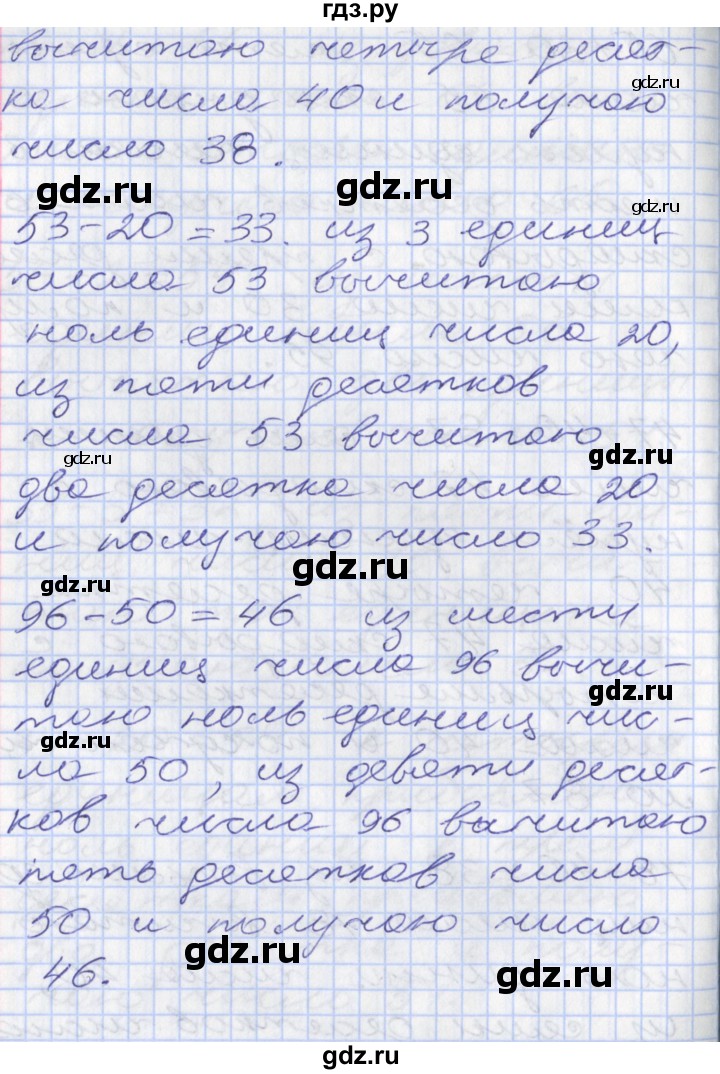 гдз.ру
вычитаю четыре десят-
ка числа 40 и получаю
число 38.
53-20=33. из 3 единиц
числа 53 вычитаю
ноль единиц числа 20,
из пяти десятков
числа 53 вычитаю
два десятка числа 20
и получаю число 33.
96-50=46 из шести
единиц числа 96 вычи-
таю ноль единиц чис-
ла 50, из девяти десят-
ков числа 96 вычитаю
пять десятков числа
50 и получаю число
46.
gdz.ru
gdz.ru
gdz.ru
gdz.ru
gdz.ru
gdz.ru
gdz.ru
gdz.ru
gdz.ru
gdz.ru
gdz.ru
gdz.ru
gdz.ru
gdz.ru